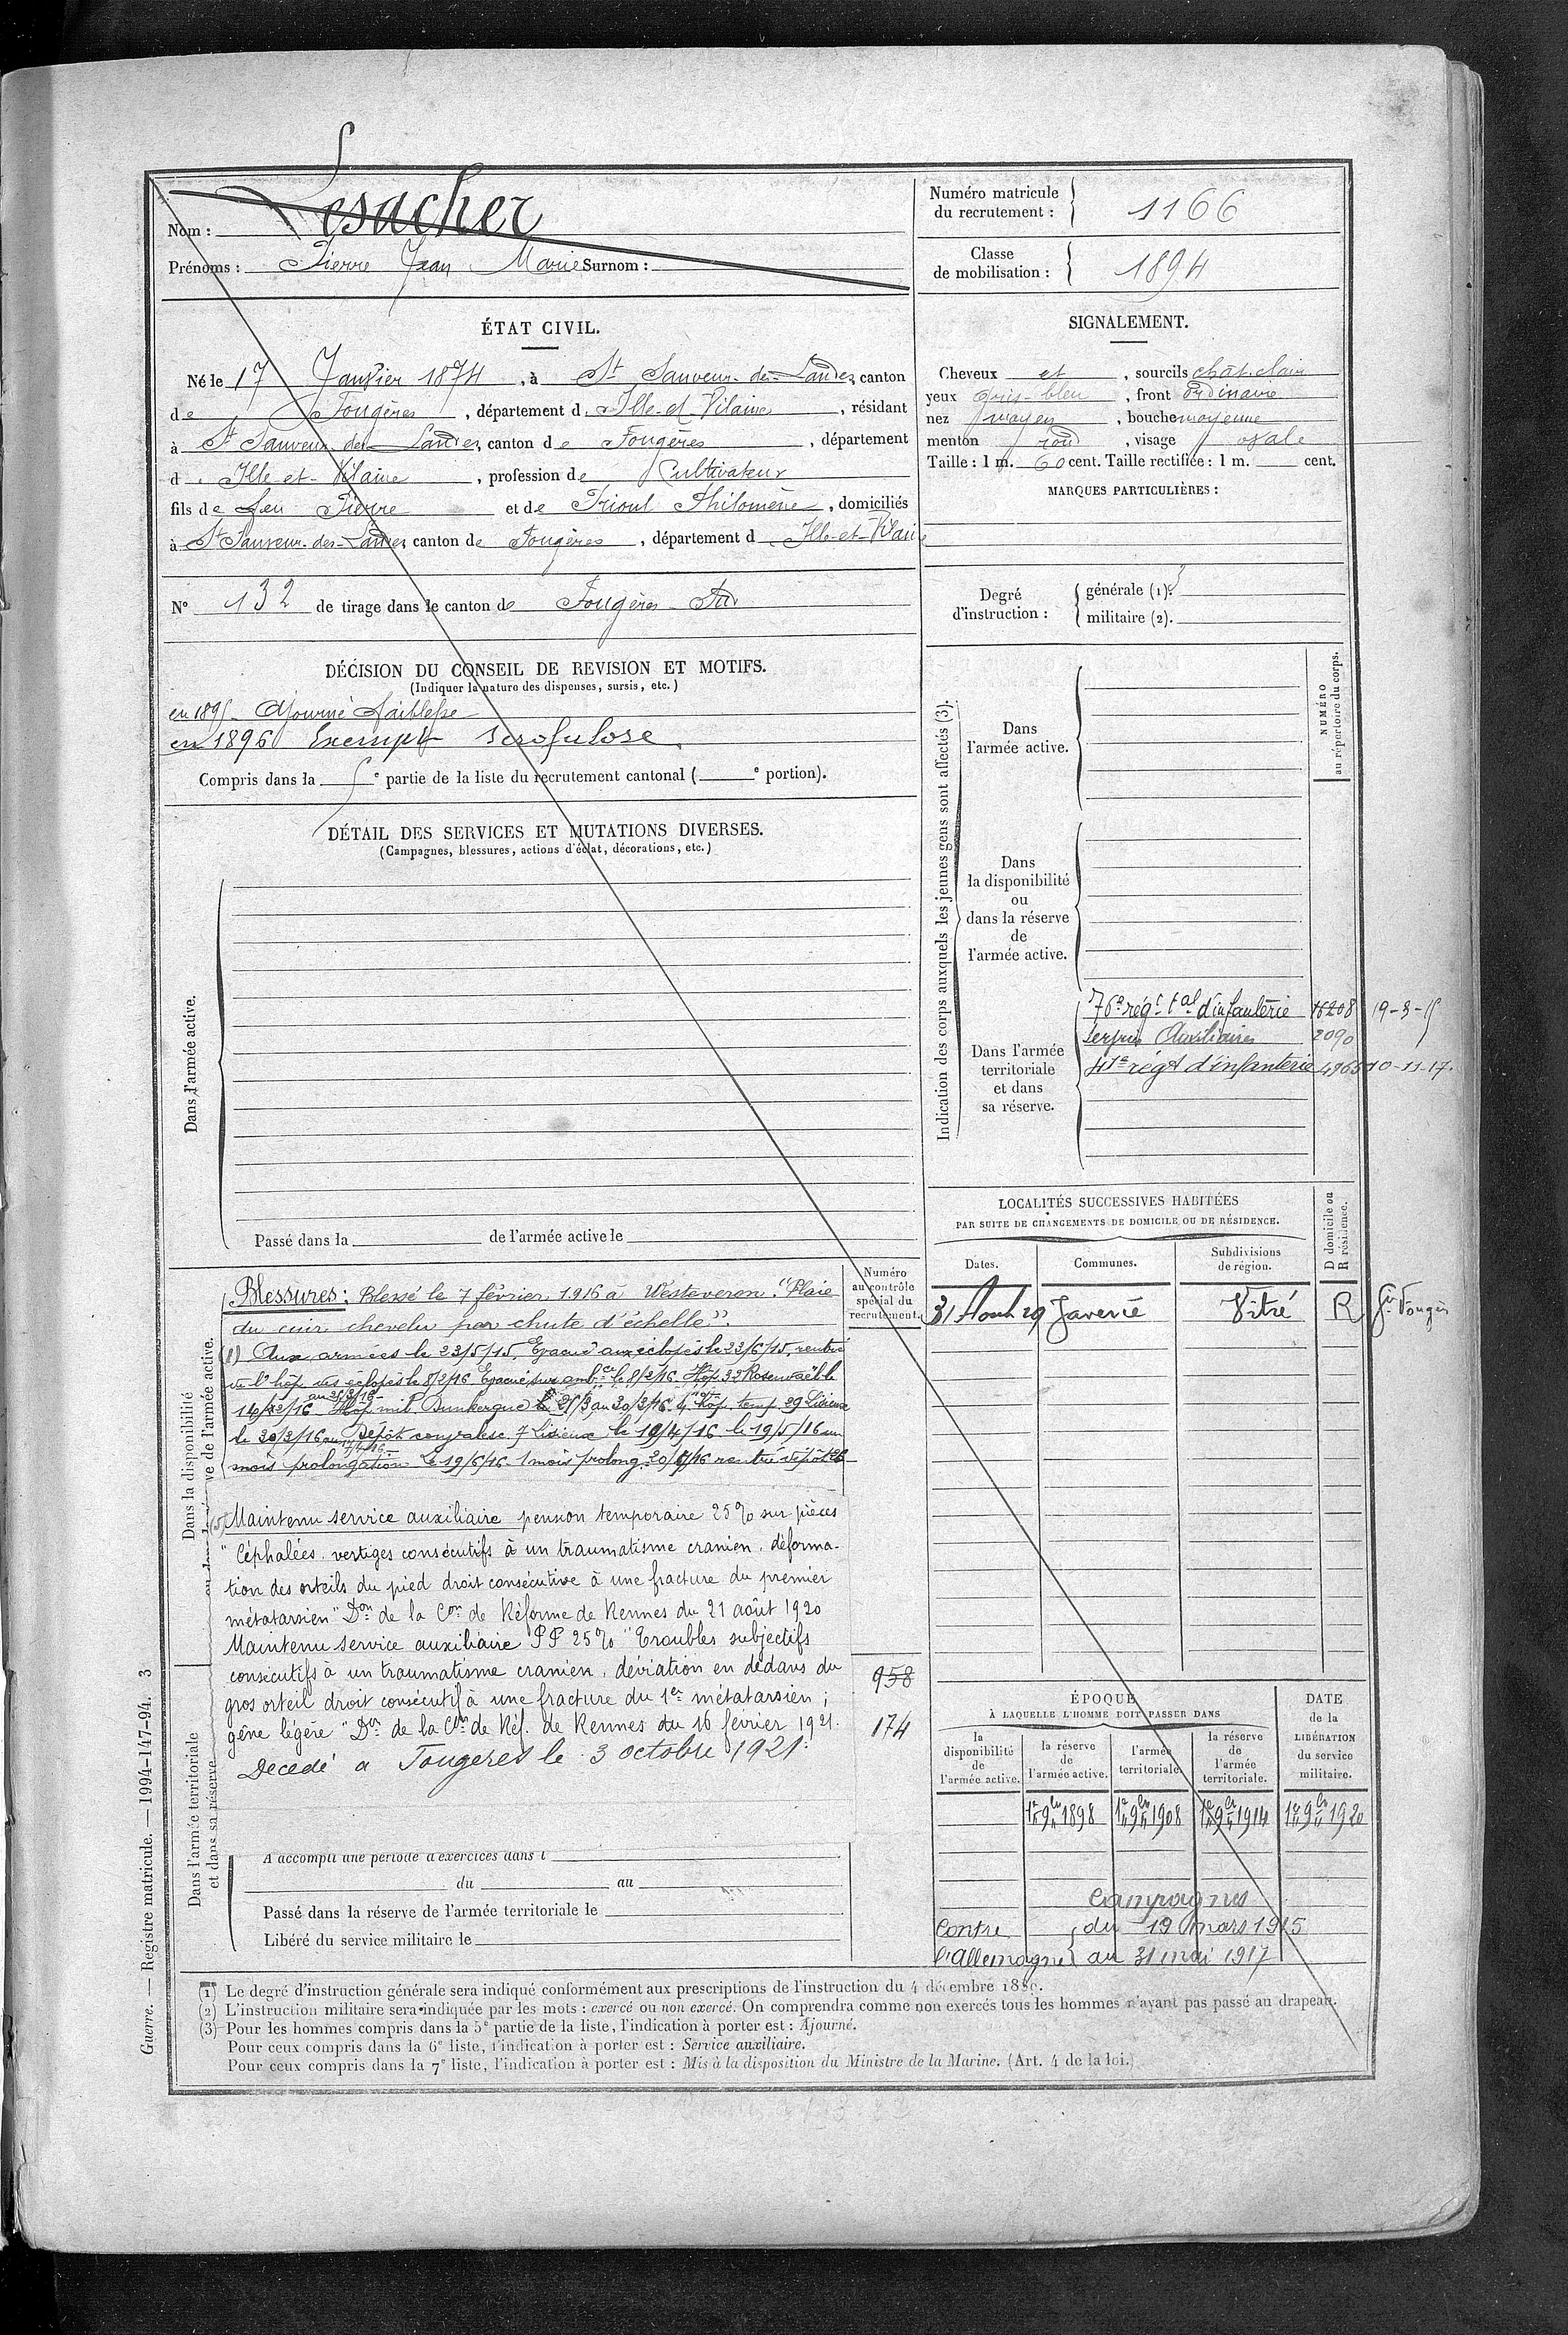 Nom : Lesacher
Prénoms : Pierre Jean Marie Surnom :
Numéro matricule du recrutement : 1166
Classe de mobilisation : 1894
ÉTAT CIVIL.
Né le 17 Janvier 1874, à St Sauveur-des-Landes, canton
de Fougères, département d. Ille-et-Vilaine, résidant
à St Sauveur des Landes, canton de Fougères, département
d. Ille-et-Vilaine, profession de Cultivateur
fils de feu Pierre et de Trioul Philomène, domiciliés
à St Sauveur-des-Landes, canton de Fougères, département d Ille-et-Vilaine
N° 132 de tirage dans le canton de Fougères Sud
SIGNALEMENT.
Cheveux et, sourcils chât. clair
yeux gris-bleu, front ordinaire
nez moyen, bouche moyenne
menton rond, visage ovale
Taille : 1 m. 60 cent. Taille rectifiée : 1 m. cent.
MARQUES PARTICULIÈRES :
Degré d'instruction :
générale (1). 3
militaire (2).
DÉCISION DU CONSEIL DE REVISION ET MOTIFS.
(Indiquer la nature des dispenses, sursis, etc.)
en 1895 - Ajourné faiblesse
en 1896 Exempt scrofulose
Compris dans la e partie de la liste du recrutement cantonal ( e portion).
DÉTAIL DES SERVICES ET MUTATIONS DIVERSES.
(Campagnes, blessures, actions d'éclat, décorations, etc.)
Dans l'armée active.
Passé dans la de l'armée active le
Indication des corps auxquels les jeunes gens sont affectés (3).
NUMÉRO au répertoire du corps.
Dans l'armée active.
Dans la disponibilité ou dans la réserve de l'armée active.
Dans l'armée territoriale et dans sa réserve.
76e régt tal d'infanterie 16208 19-3-15
Service Auxiliaire 2090
41e régt d'infanterie 4965 10-11-17.
LOCALITÉS SUCCESSIVES HABITÉES
PAR SUITE DE CHANGEMENTS DE DOMICILE OU DE RÉSIDENCE.
Dates. Communes. Subdivisions de région. D domicile ou R résidence.
31 Août 19 Javené Vitré R
Numéro au contrôle spécial du recrutement.
Dans la disponibilité ou dans la réserve de l'armée active.
Blessures : Blessé le 7 février 1916 à Westeveron. "Plaie
du cuir chevelu par chute d'échelle".
(1) Aux armées le 23/5/15. Evacué aux éclopés le 22/6/15, rentré
de l'hôp des eclopés le 8/2/16 Evacué sur amb ce le 8/2/16 Hop 32 Rosendaël le
14/2/16 au 25/3/16 Hôp. mil. Dunkerque le 25/3 au 30/3/16 Hop. temp. 29 Lisieux
le 30/3/16 Dépôt convalesc. 7 Lisieux le 19/4/16 le 19/5/16 un
mois prolongation le 19/6/16 1 mois prolong. rentré dépôt
Maintenu service auxiliaire pension temporaire 25% sur pièces
"Céphalées, vertiges consécutifs à un traumatisme cranien, déforma-
tion des orteils du pied droit consécutive à une fracture du premier
métatarsien" Don de la Con de Réforme de Rennes du 21 août 1920
Maintenu service auxiliaire PP 25% "Troubles subjectifs
consécutifs à un traumatisme cranien, déviation en dedans du
gros orteil droit consécutif à une fracture du 1er métatarsien ;
gêne légère" Don de la Con de Réf. de Rennes du 16 février 1921.
Decedé a Fougeres le 3 octobre 1921.
958
174
Dans l'armée territoriale et dans sa réserve.
A accompli une période d'exercices dans l
du au
Passé dans la réserve de l'armée territoriale le
Libéré du service militaire le
ÉPOQUE
À LAQUELLE L'HOMME DOIT PASSER DANS
la disponibilité de l'armée active.
la réserve de l'armée active.
l'armée territoriale.
la réserve de l'armée territoriale.
DATE de la LIBÉRATION du service militaire.
1er 9bre 1898 1er 9bre 1908 1er 9bre 1914 1er 9bre 1920
Campagnes
Contre du 19 mars 1915
l'Allemagne au 31 mai 1917
(1) Le degré d'instruction générale sera indiqué conformément aux prescriptions de l'instruction du 4 décembre 1889.
(2) L'instruction militaire sera indiquée par les mots : exercé ou non exercé. On comprendra comme non exercés tous les hommes n'ayant pas passé au drapeau.
(3) Pour les hommes compris dans la 5e partie de la liste, l'indication à porter est : Ajourné.
Pour ceux compris dans la 6e liste, l'indication à porter est : Service auxiliaire.
Pour ceux compris dans la 7e liste, l'indication à porter est : Mis à la disposition du Ministre de la Marine. (Art. 4 de la loi.)
Guerre. — Registre matricule. — 1994-147-94. 3